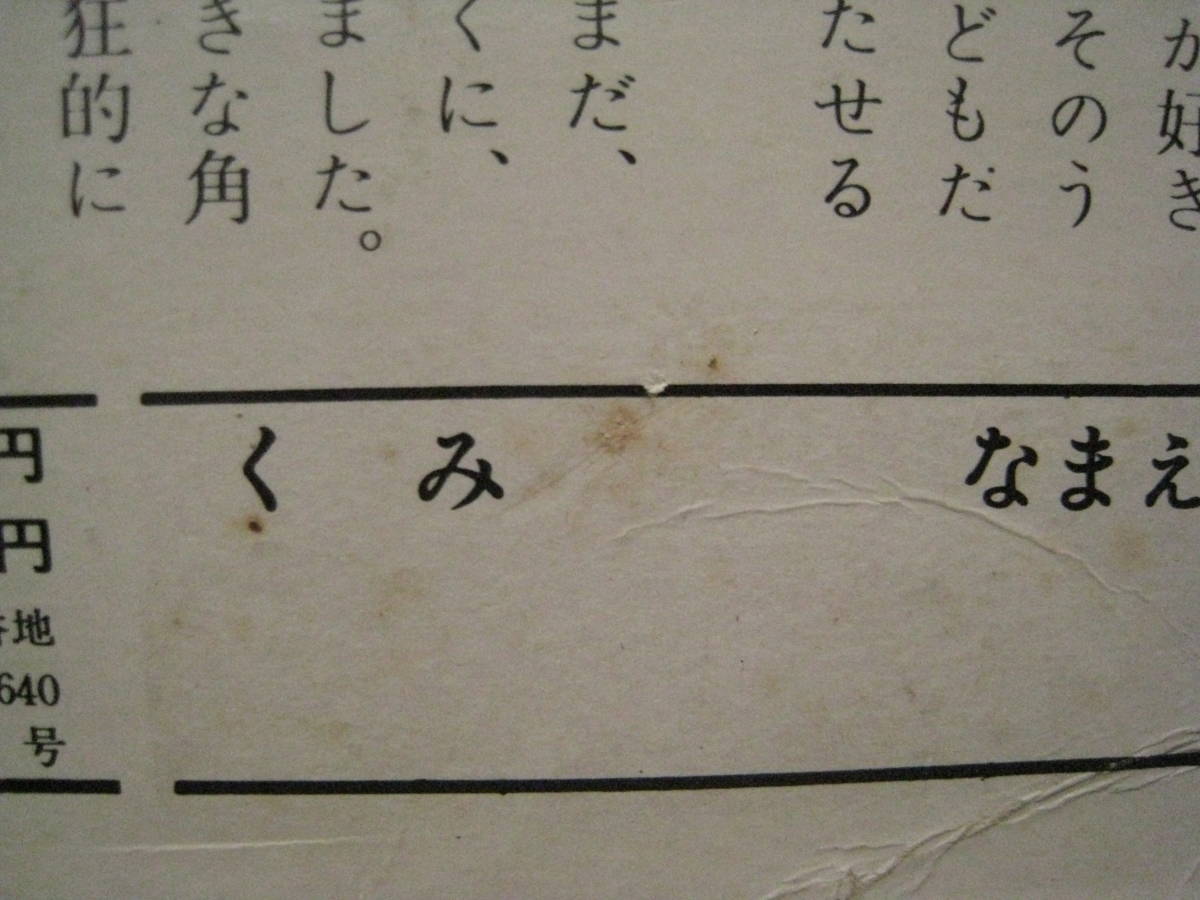 が好き
そのう
どもだ
たせる
まだ、
くに、
ました。
きな角
狂的に
なまえ
くみ
円
円
地
640
号